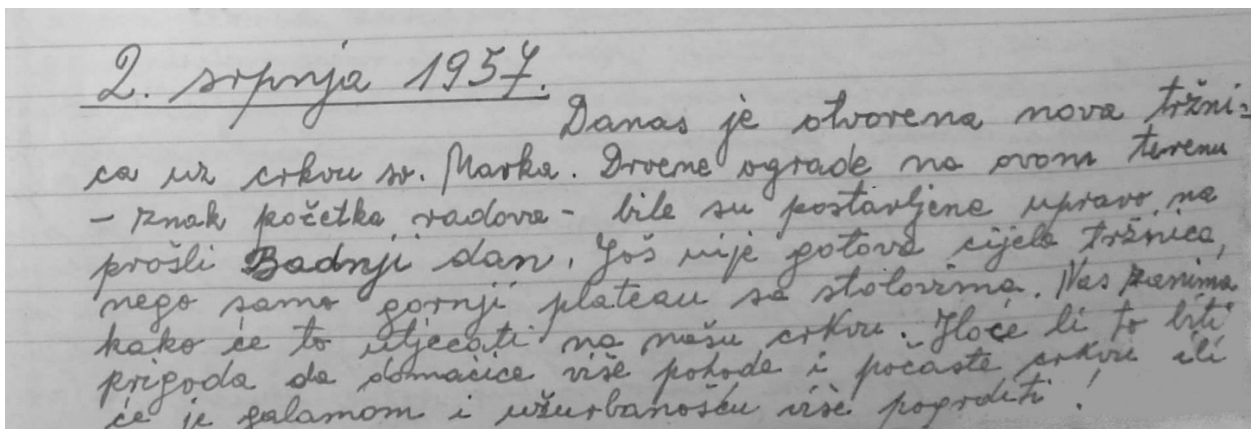 2. srpnja 1957.
Danas je otvorena nova tržni=
ca uz crkvu sv. Marka. Drvene ograde na ovom terenu
- znak početka radova - bile su postavljene upravo na
prošli Badnji dan. Još nije gotova cijela tržnica,
nego samo gornji plateau sa stolovima. Nas zanima
kako će to utjecati na našu crkvu. Hoće li to biti
prigoda da domaćice više pohode i počaste crkvu ili
će je galamom i užurbanošću više pogrditi!